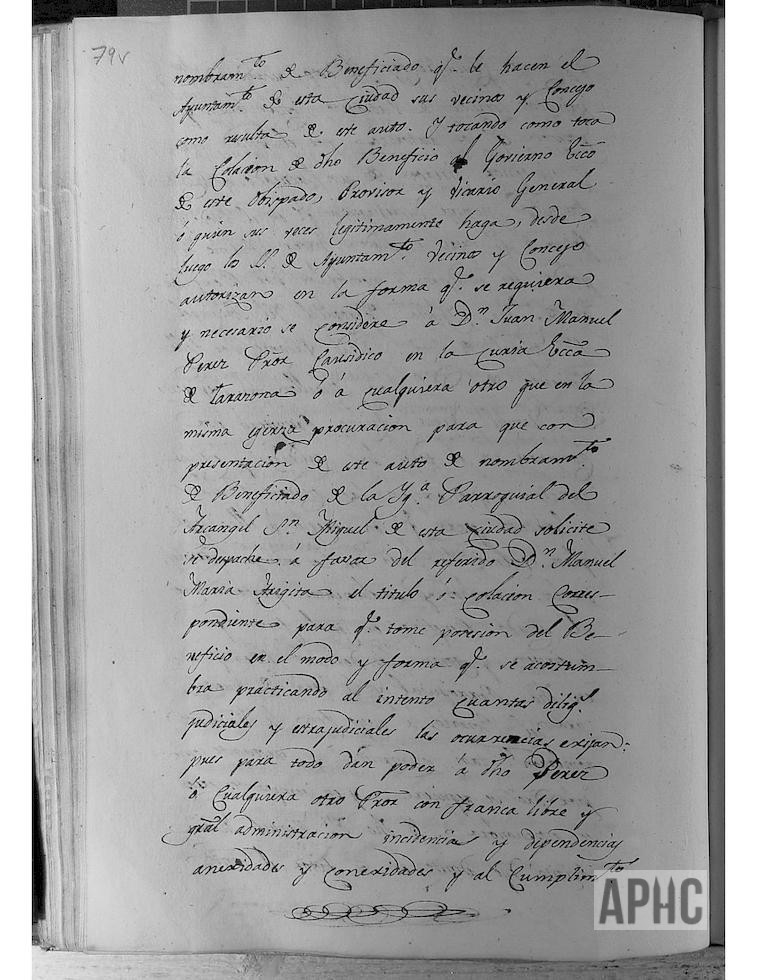 79v
nombram.to de Beneficiado q.e le hacen el
Ayuntam.to de esta Ciudad sus vecinos y Concejo
como resulta de este auto. Y tocando como toca
la Colacion de dho Beneficio al Govierno Ecco
de este Obispado, Provisor y Vicario General
ó quien sus veces legitimamente haga, desde
luego los SS. de Ayuntam.to Vecinos y Concejo
autorizan en la forma q.e se requiera
y necesario se considere á D.n Juan Manuel
Perez Pror Causidico en la Curia Ecca
de Tarazona ó á cualquiera otro que en la
misma egerza procuracion para que con
presentacion de este auto de nombram.to
de Beneficiado de la Yg.a Parroquial del
Arcangel S.n Miguel de esta Ciudad solicite
se despache á favor del referido D.n Manuel
Maria Arigita el titulo ó colacion Corres-
pondiente para q.e tome poresion del Be-
neficio en el modo y forma q.e se acostum-
bra practicando al intento cuantas dilig.s
judiciales y estrajudiciales las ocurrencias exijan:
pues para todo dán poder á dho Perez
ó Cualquiera otro Pror con franca libre y
gral administracion incidencias y dependencias
anexidades y conexidades y al Cumplim.to
APHC